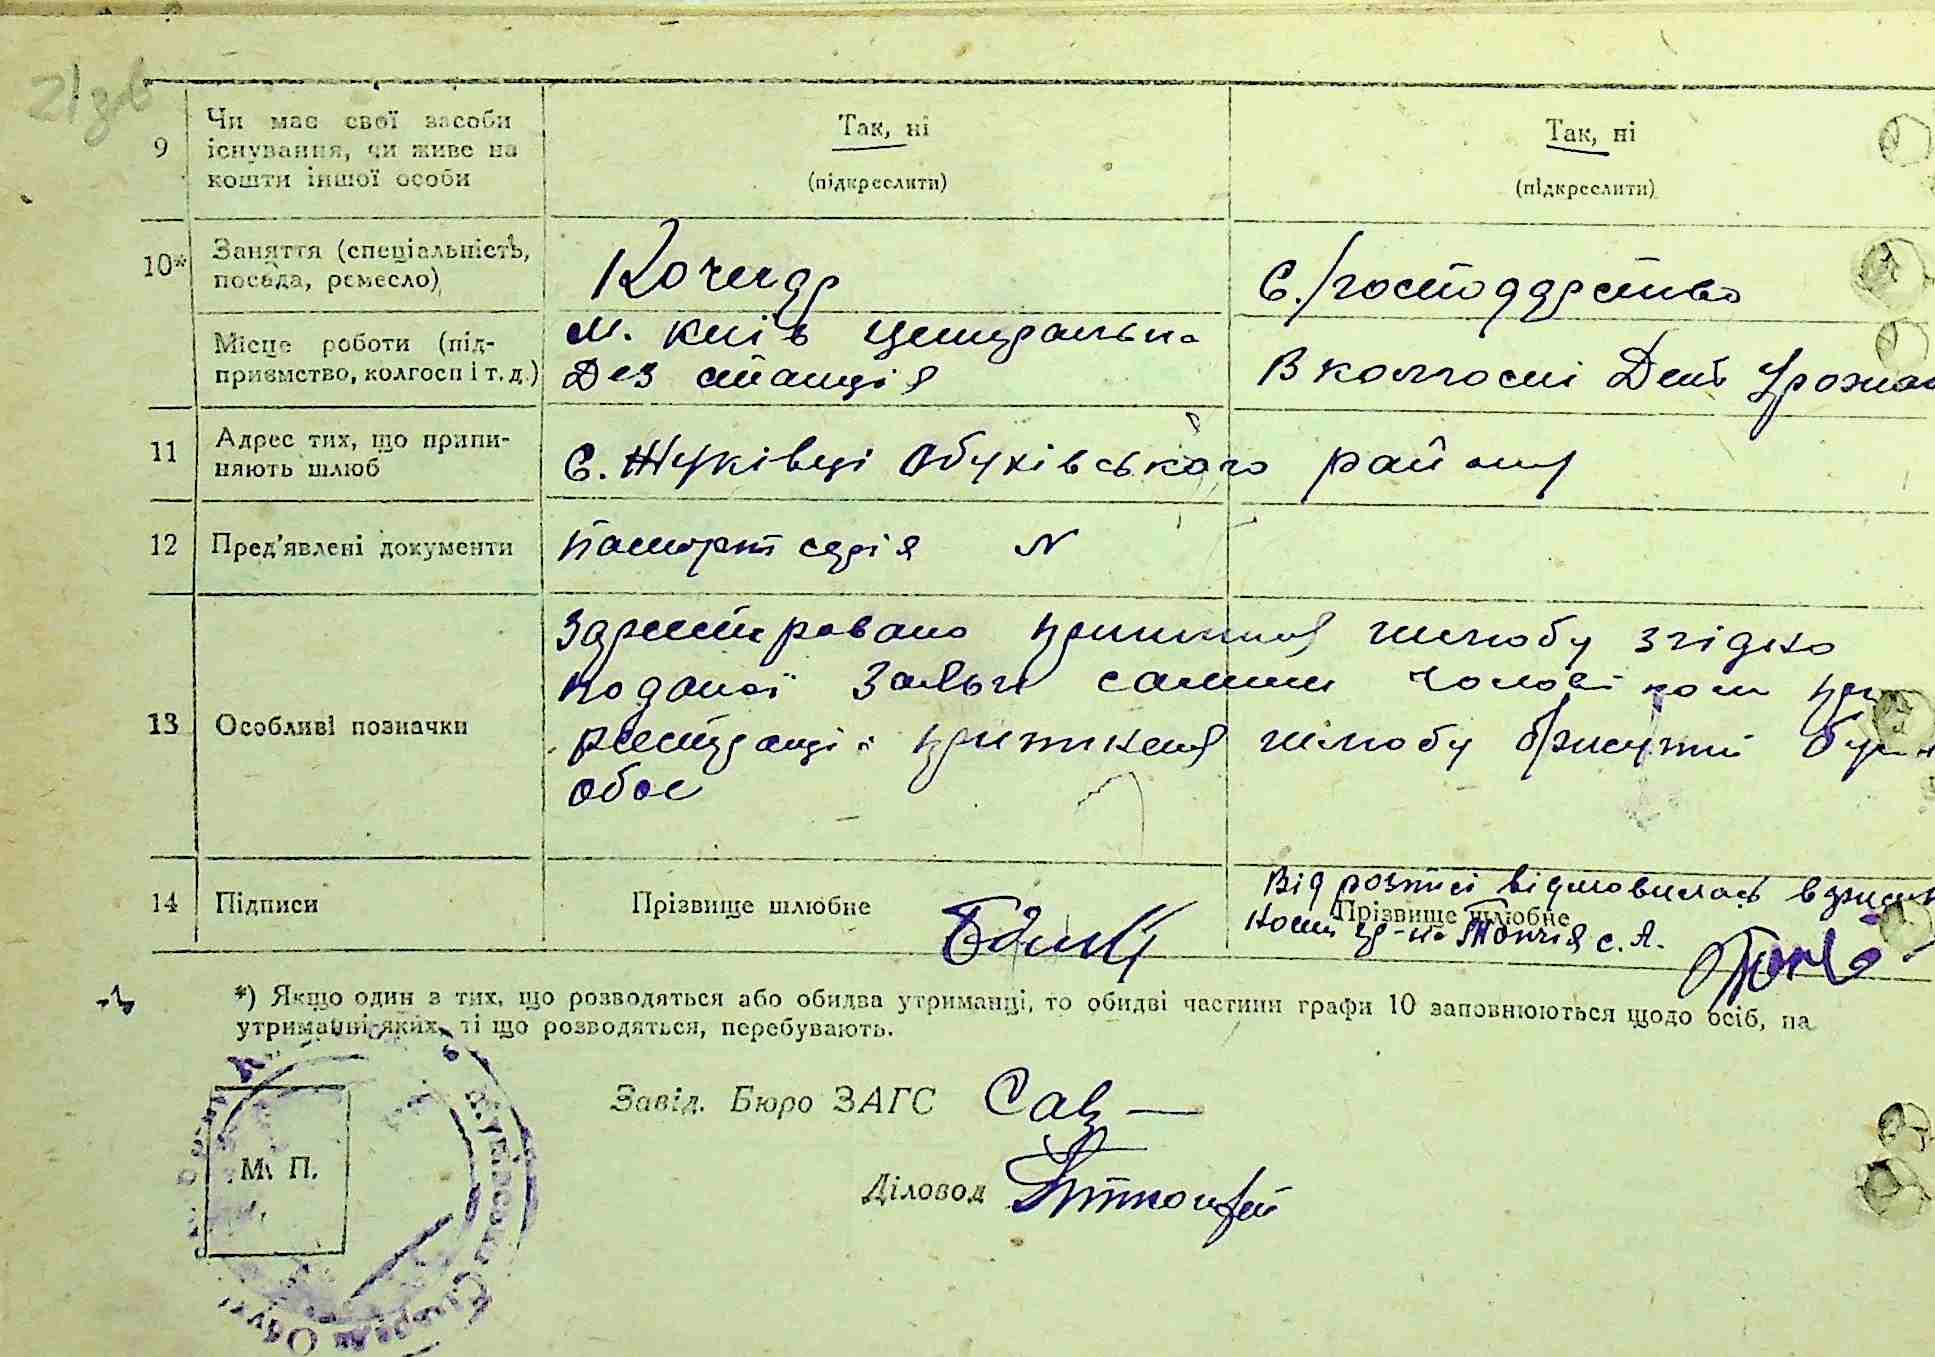 21 зв
9 Чи має свої засоби існування, чи живе на кошти іншої особи
Так, ні
(підкреслити)
Так, ні
(підкреслити)
10* Заняття (спеціальність, посада, ремесло)
Кочегар
С./господарство
Місце роботи (підприємство, колгосп і т. д.)
м. Київ Центральна
Дез станція
В колгоспі День Урожаю
11 Адрес тих, що припиняють шлюб
с. Жуківці Обухівського району
12 Пред'явлені документи
Паспорт серія N
13 Особливі позначки
припиненя шлюбу згідно
поданої Заяви самим чоловіком при
реєстрації припиненя шлюбу були
обоє
14 Підписи
Прізвище шлюбне
Від розписі відмовилась
Прізвище шлюбне
с. А.
*) Якщо один з тих, що розводяться або обидва утриманці, то обидві частини графи 10 заповнюються щодо осіб, на
утриманні яких, ті що розводяться, перебувають.
Завід. Бюро ЗАГС
Діловод
М. П.